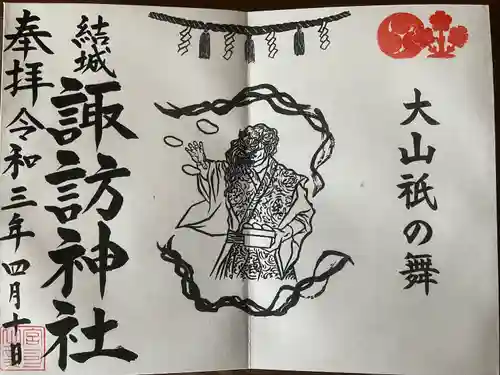 大山祇の舞
結城
諏訪神社
奉拝 令和三年四月十日